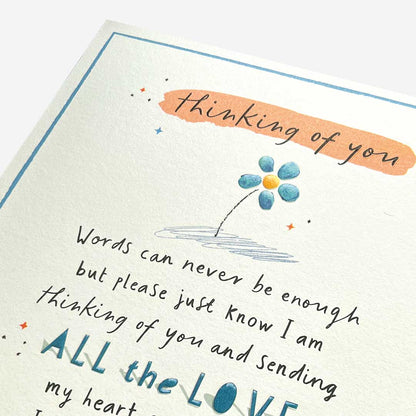 thinking of you
Words can never be enough
but please just know I am
thinking of you and sending
ALL the LOVE
my heart